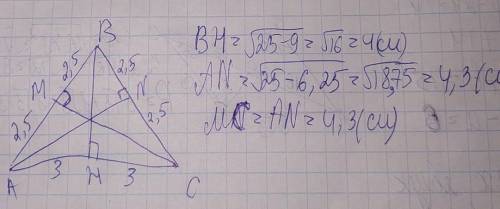 B
2,5 2,5
M N
2,5 2,5
3 3
A H C
BH = √25-9 = √16 = 4(см)
AN = √25-6,25 = √18,75 = 4,3(см)
MC = AN = 4,3(см)